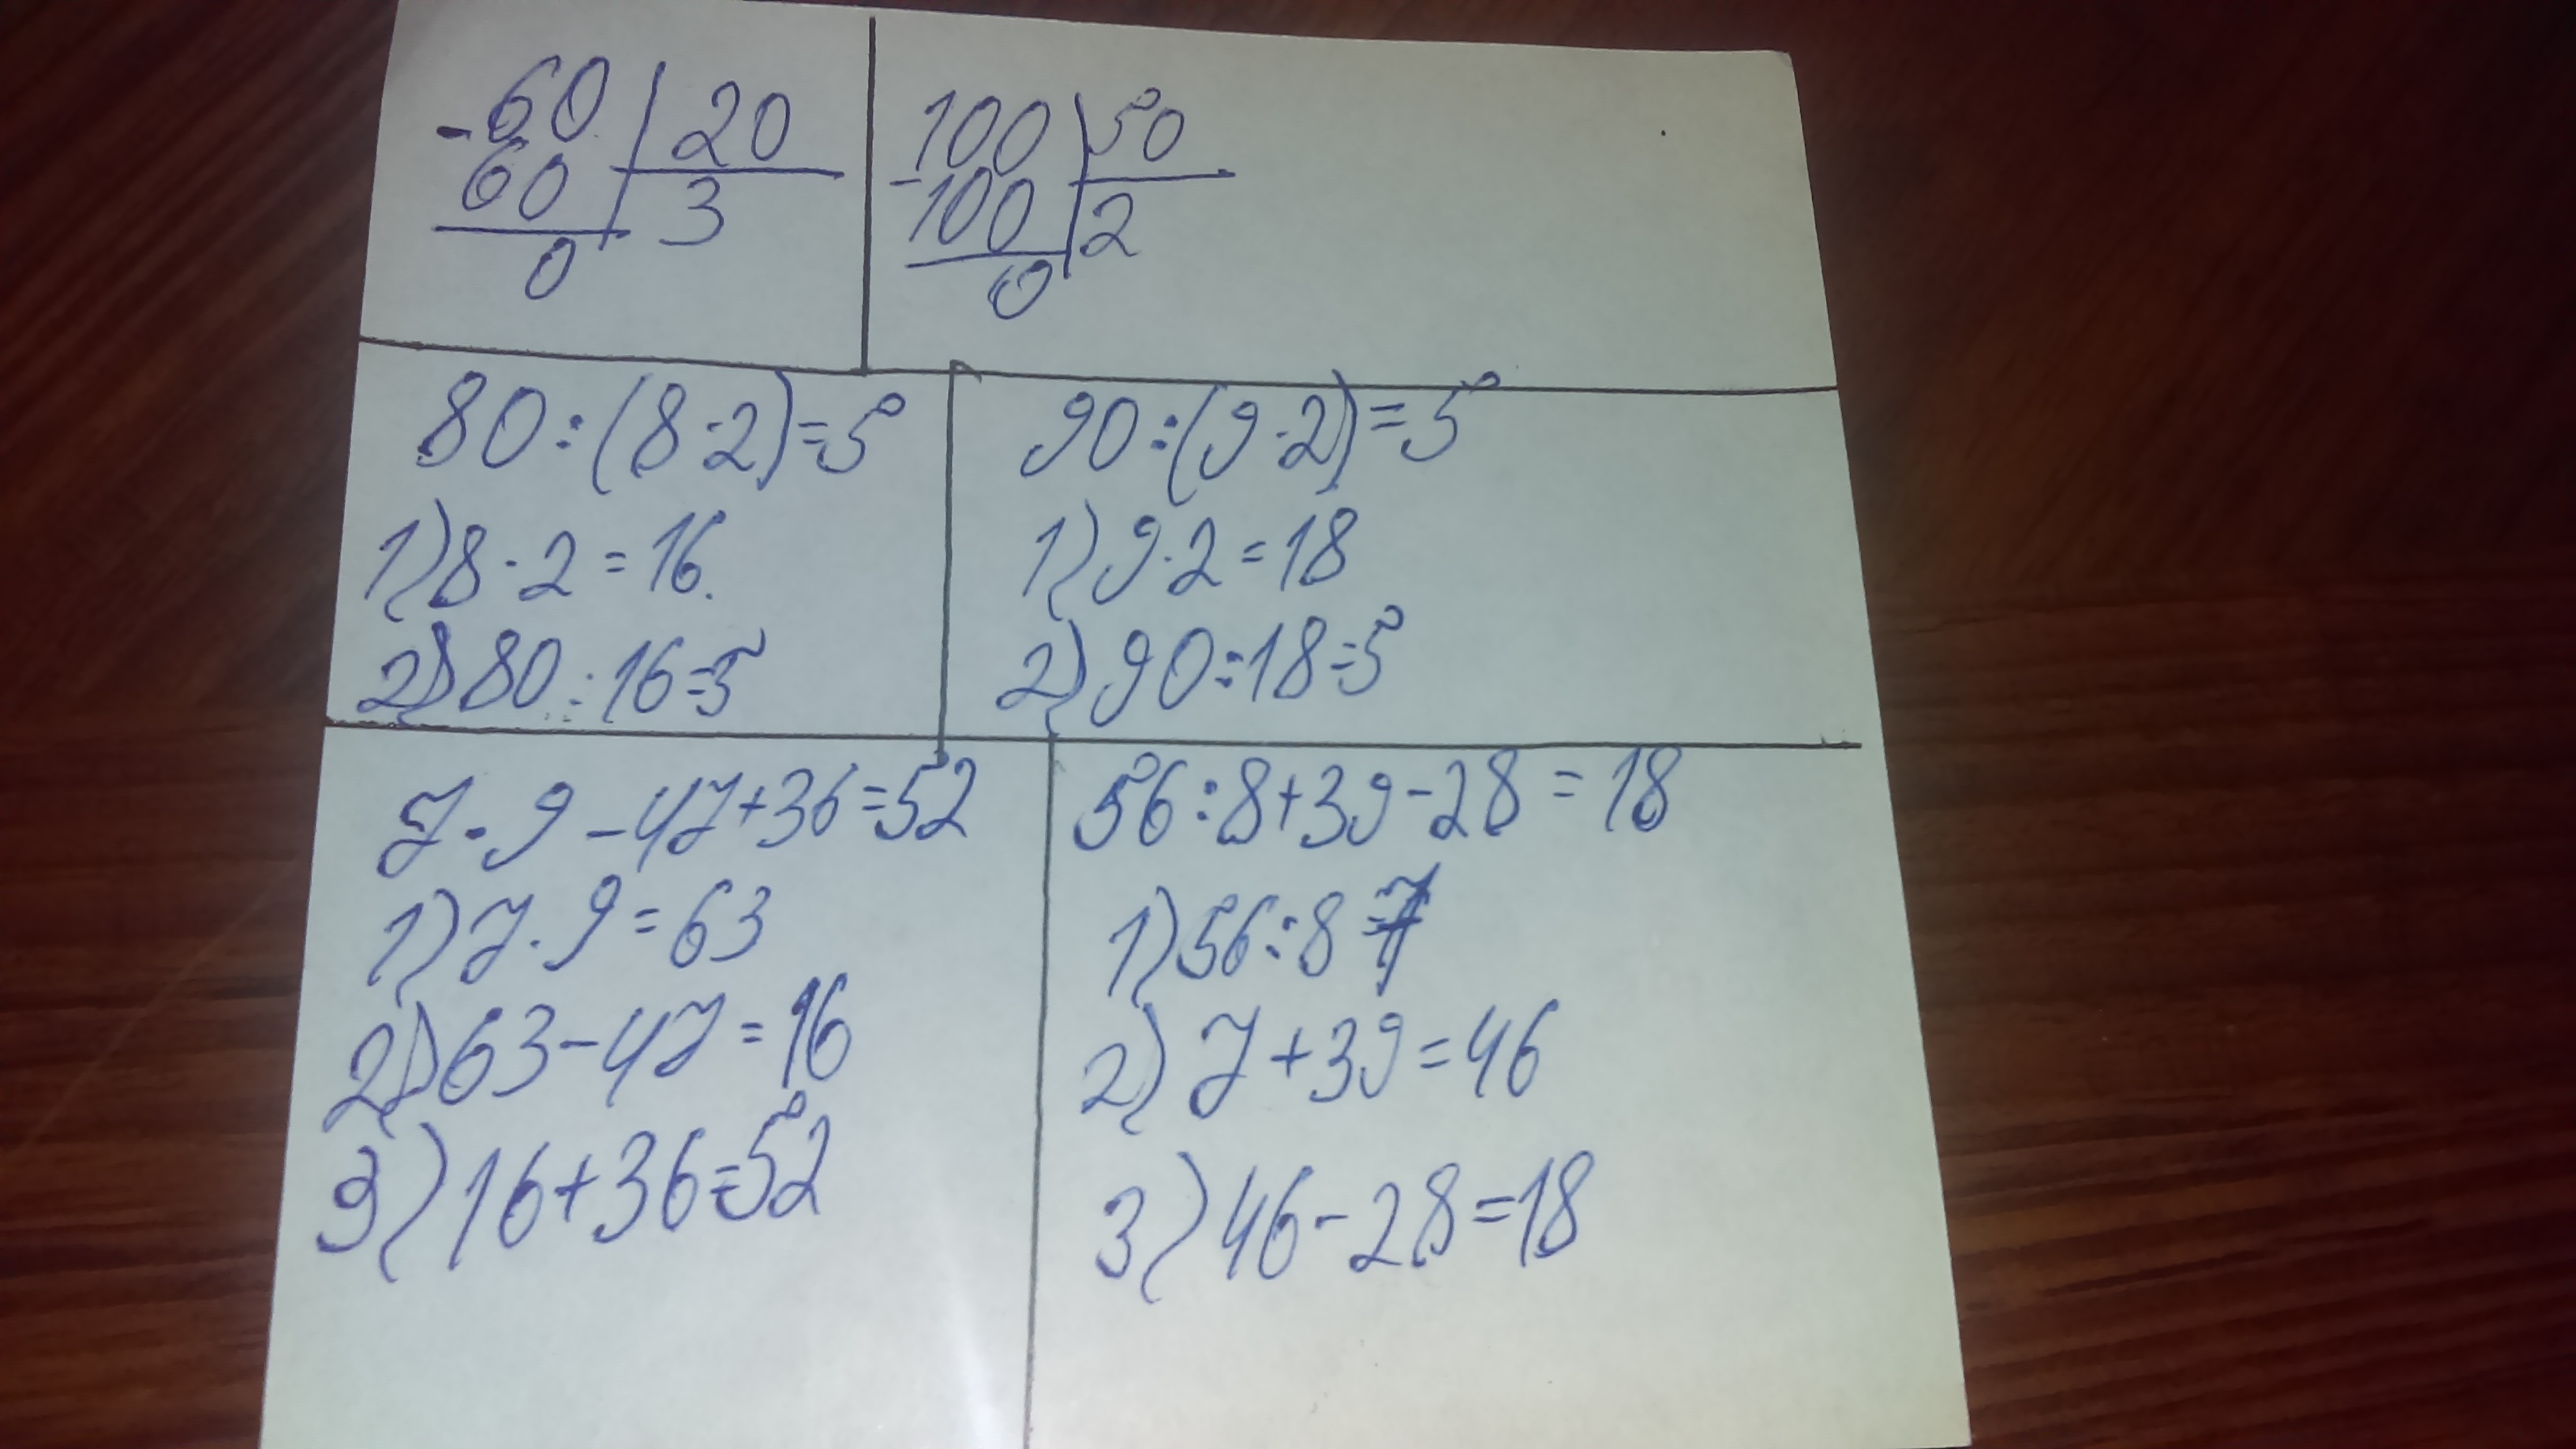 -60 | 20
60 | 3
0
-100 | 50
100 | 2
0
80:(8·2)=5
1) 8·2=16.
2) 80:16=5
90:(9·2)=5
1) 9·2=18
2) 90:18=5
7·9-47+36=52
1) 7·9=63
2) 63-47=16
3) 16+36=52
56:8+39-28=18
1) 56:8=7
2) 7+39=46
3) 46-28=18